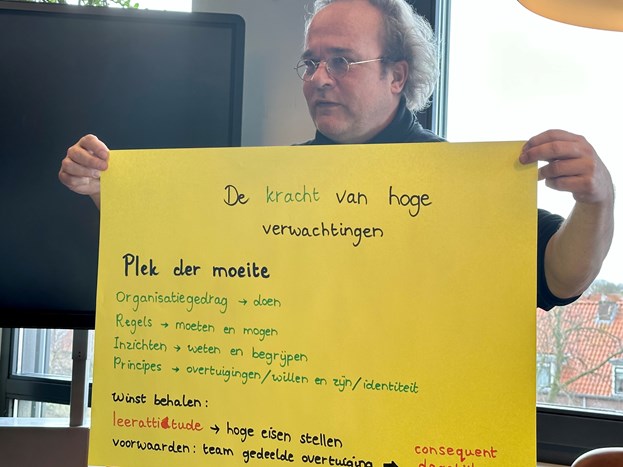 De kracht van hoge
verwachtingen
Plek der moeite
Organisatiegedrag → doen
Regels → moeten en mogen
Inzichten → weten en begrijpen
Principes → overtuigingen/willen en zijn/identiteit
Winst behalen:
leerattitude → hoge eisen stellen
voorwaarden: team gedeelde overtuiging → consequent